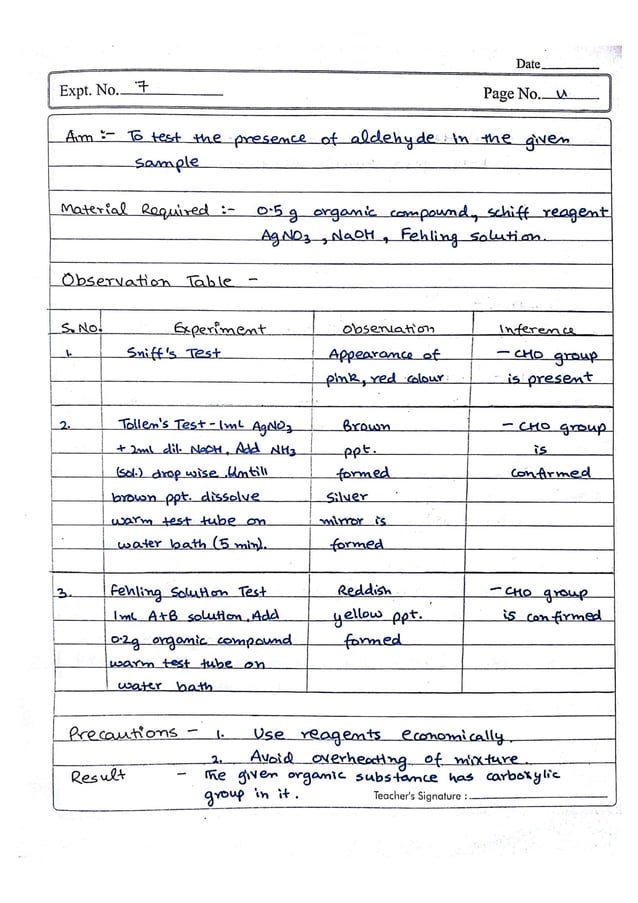 Date
Expt. No. 7
Page No. 4
Aim :- To test the presence of aldehyde in the given
sample
Material Required :- 0.5 g organic compound, schiff reagent
AgNO3, NaOH, Fehling solution.
Observation Table -
S.No. Experiment Observation Inference
1. Sniff's Test Appearance of - CHO group
pink, red colour is present
2. Tollen's Test - 1mL AgNO3 Brown - CHO group
+ 2ml dil. NaOH, Add NH3 ppt. is
(sol.) drop wise untill formed confirmed
brown ppt. dissolve silver
warm test tube on mirror is
water bath (5 min). formed
3. Fehling Solution Test Reddish - CHO group
1mL A+B solution, Add yellow ppt. is confirmed
0.2g organic compound formed
warm test tube on
water bath
Precautions - 1. Use reagents economically.
2. Avoid overheating of mixture.
Result - The given organic substance has carboxylic
group in it.
Teacher's Signature :